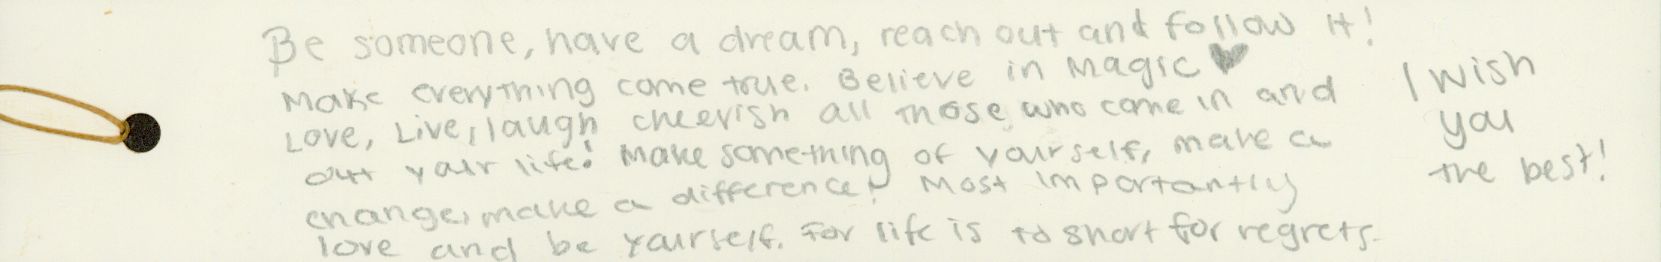 Be someone, have a dream, reach out and follow it!
Make everything come true. Believe in Magic ♥
Love, Live, laugh cheerish all those who come in and
out your life! Make something of yourself, make a
change, make a difference! Most importantly
love and be yourself. For life is to short for regrets.
I wish
you
the best!